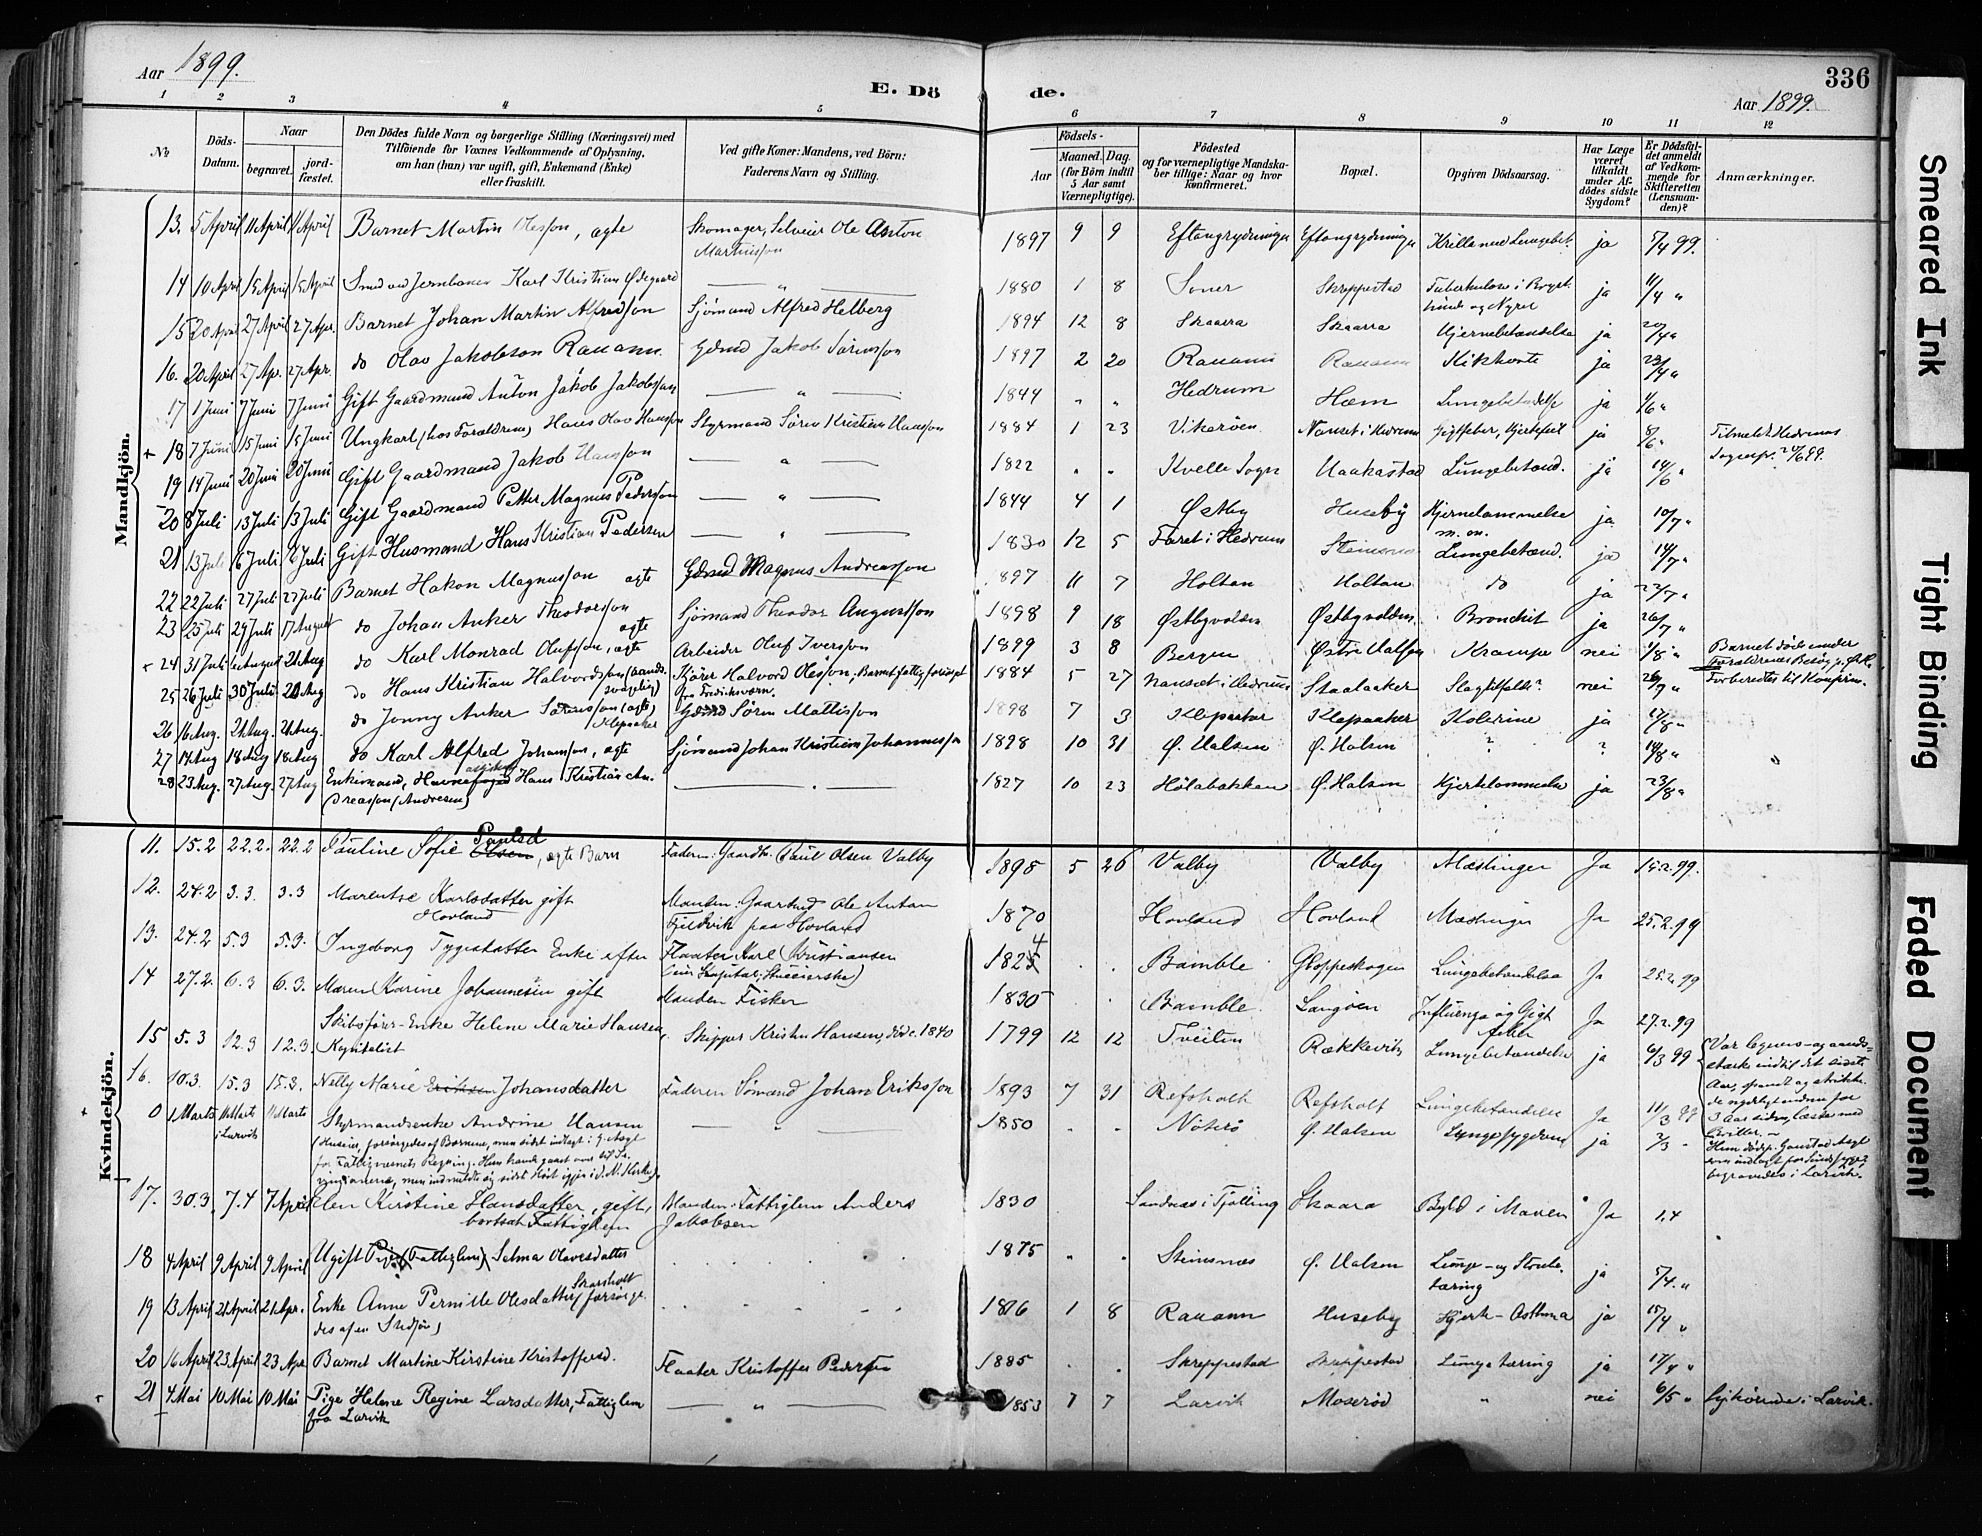 Aar 1899.
E. Dö
de.
336
Aar 1899.
1 2 3 4 5 6 7 8 9 10 11 12
№
Döds-Datum.
Naar
begravet.
jord-fæstet.
Den Dödes fulde Navn og borgerlige Stilling (Næringsvei) med
Tilföiende for Voxnes Vedkommende af Oplysning,
om han (hun) var ugift, gift, Enkemand (Enke)
eller fraskilt.
Ved gifte Koner: Mandens, ved Börn:
Faderens Navn og Stilling.
Födsels-
Aar
Maaned. Dag.
(for Börn indtil
5 Aar samt
Værnepligtige).
Födested
og for værnepligtige Mandska-
ber tillige: Naar og hvor
konfirmeret.
Bopæl.
Opgiven Dödsaarsag.
Har Læge
været
tilkaldt
under Af-
dödes sidste
Sygdom?
Er Dödsfal-
det anmeldt
af Vedkom-
mende for
Skifteretten
(Lensman-
den)?
Anmærkninger.
Mandkjön.
13. 5 April 11 April 11 April Barnet Martin Olesson, ægte Skomager, Selveier Ole Anton Martinsson 1897 9 9 ja 5/4 99.
14 10 April 15 April 15 April Smed ved Jernbanen Karl Kristian Ødegaard " 1880 1 8 Soner Skreppestad Tuberkulose i Brysthinde og Nyrer ja 11/4 "
15 20 April 27 April 27 Apr. Barnet Johan Martin Alfredsson Sjömand Alfred Helberg 1894 12 8 Skaarra Skaarra Hjernebetændelse ja 20/4 "
16. 20 April 27 Apr. 27 Apr. do Olav Jakobson Rauann. Gdmd Jakob Sörensson 1897 2 20 Rauann Rauann Kikhoste ja 22/4 "
17 1 Juni 7 Juni 7 Juni Gift Gaardmand Anton Jakob Jakobsson " 1844 " " Hedrum Hæm Lungebetændelse ja 1/6 "
+ 18 7 Juni 15 Juni 15 Juni Ungkarl (hos Forældrene) Hans Olav Hansson Styrmand Sören Kristian Hansson 1884 1 23 Vikeröen Nanset i Hedrum Gigtfeber, Hjertefeil ja 8/6 " Tilmeldt Hedrums Sognepr. 20/6 99.
19 14 Juni 20 Juni 20 Juni Gift Gaardmand Jakob Hansson " 1822 " " Kvelle Sogn Haakastad Lungebetænd. ja 14/6 "
20 8 Juli 13 Juli 13 Juli Gift Gaardmand Petter Magnus Pedersson " 1844 4 1 Østby Huseby Hjernelammelse m.m. ja 10/7 "
21 13 Juli 16 Juli 16 Juli Gift Husmand Hans Kristian Pedersen " 1830 12 5 Faret i Hedrum Steinsnes Lungebetænd. ja 14/7 "
22 22 Juli 27 Juli 27 Juli Barnet Hakon Magnusson ægte Gdmd Magnus Andreasson 1897 11 7 Holtan Holtan do ja 22/7 "
23 25 Juli 29 Juli 17 August do Johan Anker Theodorsson ægte Sjömand Theodor Augustsson 1898 9 18 Østbyvolden Østbyvolden Bronchit ja 26/7 "
24 31 Juli August 21 Aug do Karl Monrad Olufsson, ægte Arbeider Oluf Iversson 1899 3 8 Bergen Østre Halsen Krampe nei 1/8 " Barnet döde under Forældrenes Besög p. Ø.H.
25 26 Juli 30 Juli 20 Aug do Hans Kristian Halvordsson (aandssvaglig) Kjörer Halvord Olesson, Barnet fattigforsörget fra Fredriksværn. 1884 5 27 Nanset i Hedrum Staalaaker Slagtilfælde? nei " Forberedtes til Konfirm.
26 16 Aug. 21 Aug. 21 Aug. do Jonny Anker Sörensson (ægte) Klepaaker Gdmd Sören Mattisson 1898 7 3 Klepaaker Klepaaker Kolerine ja 17/8 "
27 17 Aug 18 Aug 18 Aug do Karl Alfred Johansson, ægte Sjömand Johan Kristian Johannesson 1898 10 31 Ø. Halsen Ø. Halsen ? ? 18/8 "
28 23 Aug. 27 Aug. 27 Aug Enkemand, Havnefoged Hans Kristian Andreasson (Andresen) 1827 10 23 Hölabakken Ø. Halsen Hjertelammelse ja 23/8 "
Kvindekjön.
11. 15.2 22.2. 22.2 Pauline Sofie Olsen Paulsd, ægte Barn Faderen: Gaardb. Paul Olsen Valby 1895 5 26 Valby Valby Mæslinger Ja 15.2.99.
12. 24.2 3.3. 3.3 Marentse Karlsdatter gift Hovland Manden: Gaardmd Ole Anton Fjeldvik paa Hovland 1870 Hovland Hovland Mæslinger Ja 25.2.99
13. 24.2 5.3 5.3. Ingeborg Tygesdatter Enke efter Flaater Karl Kristiansen 1824 . . Bamble Gloppeskogen Lungebetændelse Ja 25.2.99
14 27.2. 6.3 6.3. Maren Karine Johannesen gift Manden Fisker 1830 . . Bamble Langöen Influenza og Gigtfeber Ja 27.2.99
15 5.3 12.3 12.3. Skibsförer-Enke Helene Marie Hansen, Kapitalist Skipper Kristen Hansen, död c. 1840 1799 12 12 Tveiten Rækkevik Lungebetændelse ja 6/3 99 Var legems- og aandsstærk indtil det sidste Aar, spandt og strikkede
16. 10.3. 15.3 15.3. Nelly Marie Eriksen Johansdatter Faderen Sömand Johan Eriksson 1893 7 31 Refsholt Refsholt Lungebetændelse Ja 11/3 99
0 1 Marts 11 Marts i Larvik 11 Marts Styrmandsenke Andrine Hansen " 1850 . . Nöterö Ø. Halsen Lungesygdom ja 2/3 " Hun döde p. Gaustad Asyl som indlagt for Sindssyge, begravedes i Larvik.
17. 30.3. 7.4 7 April Elen Kirstine Hansdatter, gift, bortsat Fattiglem Manden: Fattiglem Anders Jakobsen 1830 Sandnæs i Tjölling Skaara Byld i Maven Ja 1.4
18 4 April 9 April 9 April Ugift Pige (Fattiglem) Selma Olavesdatter 1875 " " Steinsnæs Ø. Halsen Lunge- og Strubetæring ja 5/4. "
19 13 April 21 April 21 Apr. Enke Anne Pernille Olesdatter Skarsholt forsörgedes af en Stedsön) 1816 1 8 Rauann Huseby Hjerte-Asthma ja 15/4 "
20 16 April 23 April 23 Apr Barnet Martine Kirstine Kristoffersd. Flaater Kristoffer Pedersen 1885 . . Skreppestad Skreppestad Lungetæring ja 17/4 "
21 4 Mai 10 Mai 10 Mai Pige Helene Regine Larsdatter, Fattiglem fra Larvik " 1853 7 7 Larvik Moseröd " nei 6/5 " hjihörende i Larvik.
Smeared Ink
Tight Binding
Faded Document